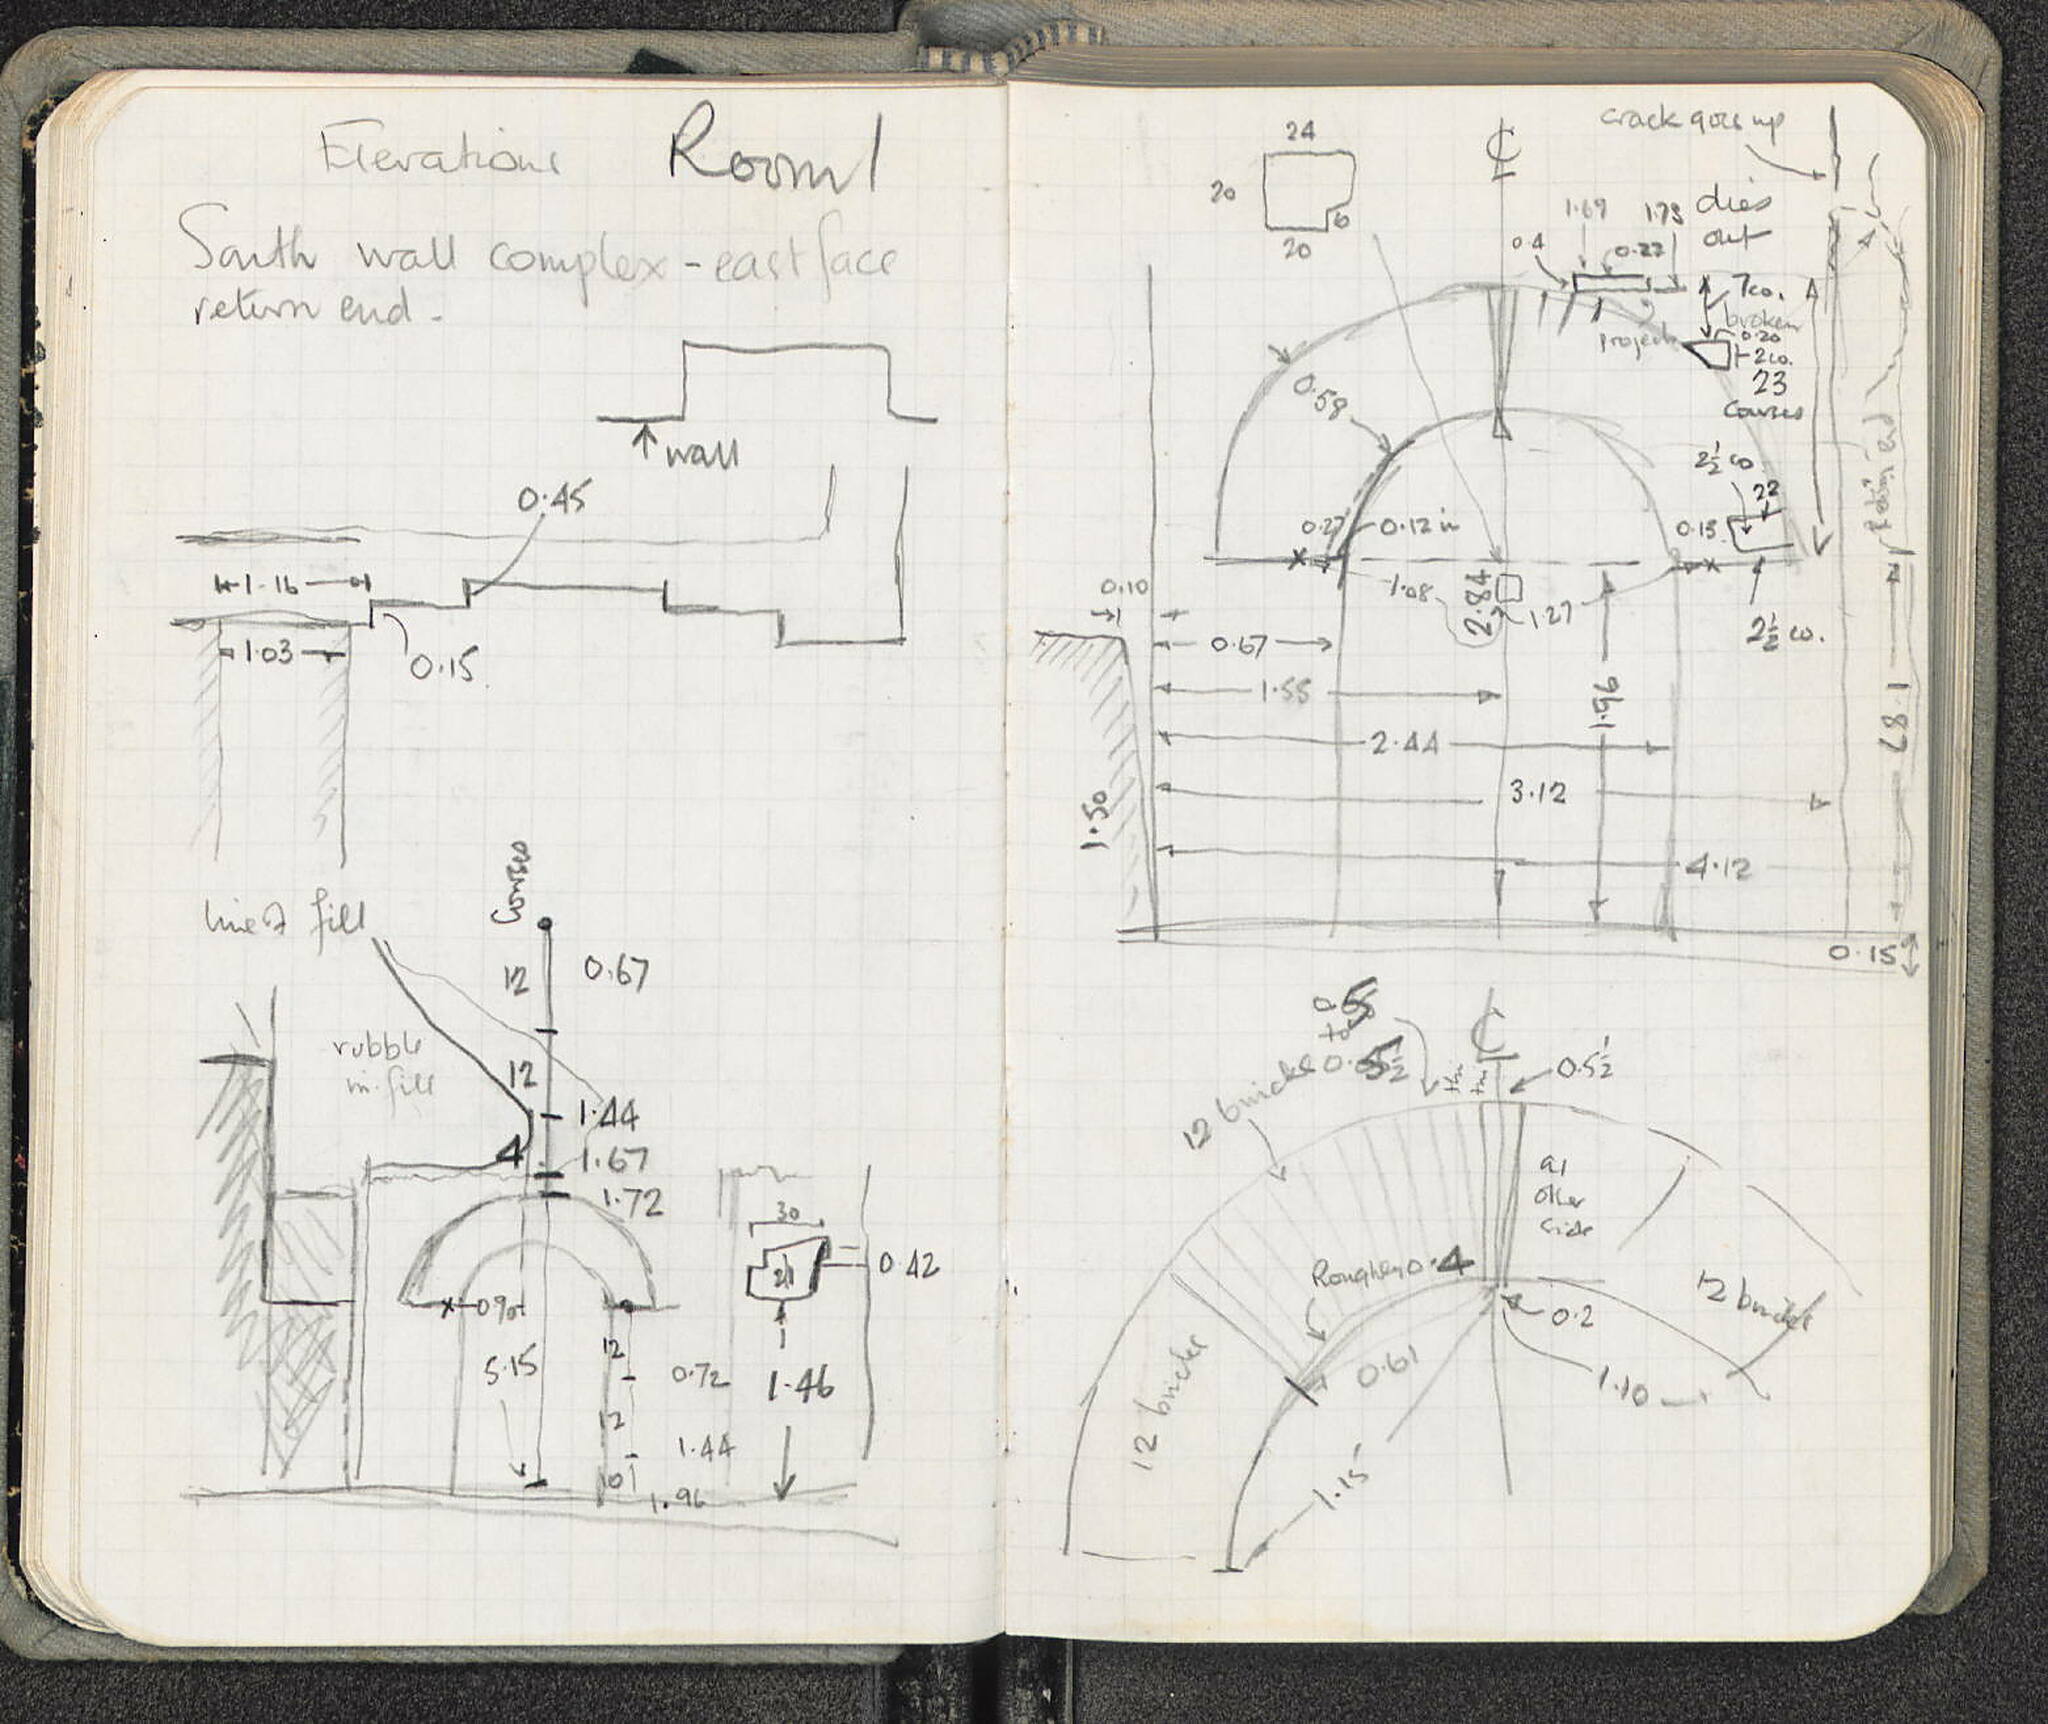 Elevations Room 1
South wall complex - east face
return end -
wall
0.45
1.16
1.03
0.15
Courses
line of fill
12 0.67
rubble
in-fill
12
1.44
4 1.67
1.72
30
21
0.42
0.90
12
5.15
0.72
1.46
12
1.44
10
1.96
24
20
6
20
℄
crack goes up
1.69 1.73 dies
out
0.4 0.22
7co.
broken
0.20
2co.
23
courses
0.58
2½ co.
22
0.27 0.12 in
0.13
0.10
1.08
2.84
1.27
2½ co.
0.67
1.55
1.96
1.87
2.44
3.12
1.50
4.12
0.15
℄
to
0.5½
12 bricks
at
other
side
Roughly 0.4
12 bricks
0.2
0.61
1.10
12 bricks
1.15